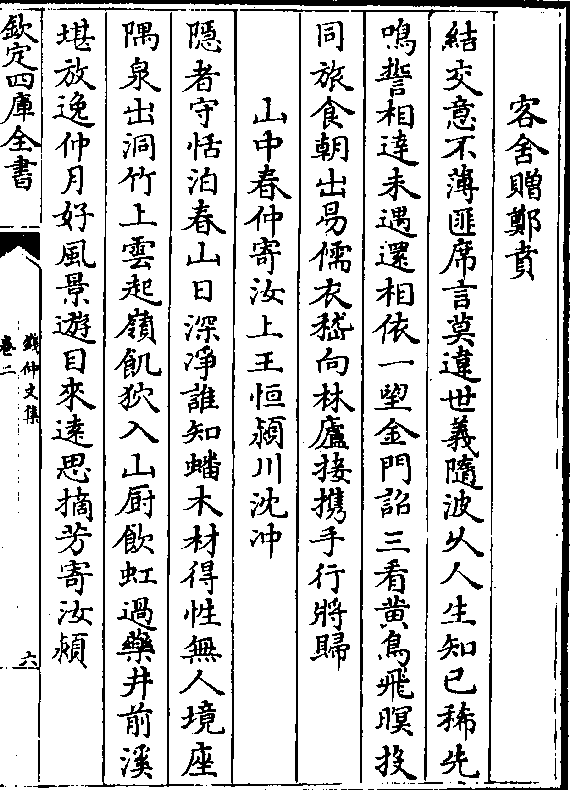 客舍贈鄭賁
結交意不薄匪席言莫違世義隨波久人生知已稀先
鳴誓相達未遇還相依一望金門詔三看黄鳥飛暝投
同旅食朝出易儒衣嵇向林廬接携手行將歸
山中春仲寄汝上王恒潁川沈冲
隱者守恬泊春山日深淨誰知蟠木材得性無人境座
隅泉出洞竹上雲起嶺飢狖入山厨飲虹過藥井前溪
堪放逸仲月好風景遊目來遠思摘芳寄汝潁
欽定四庫全書
錢仲文集
卷二
六